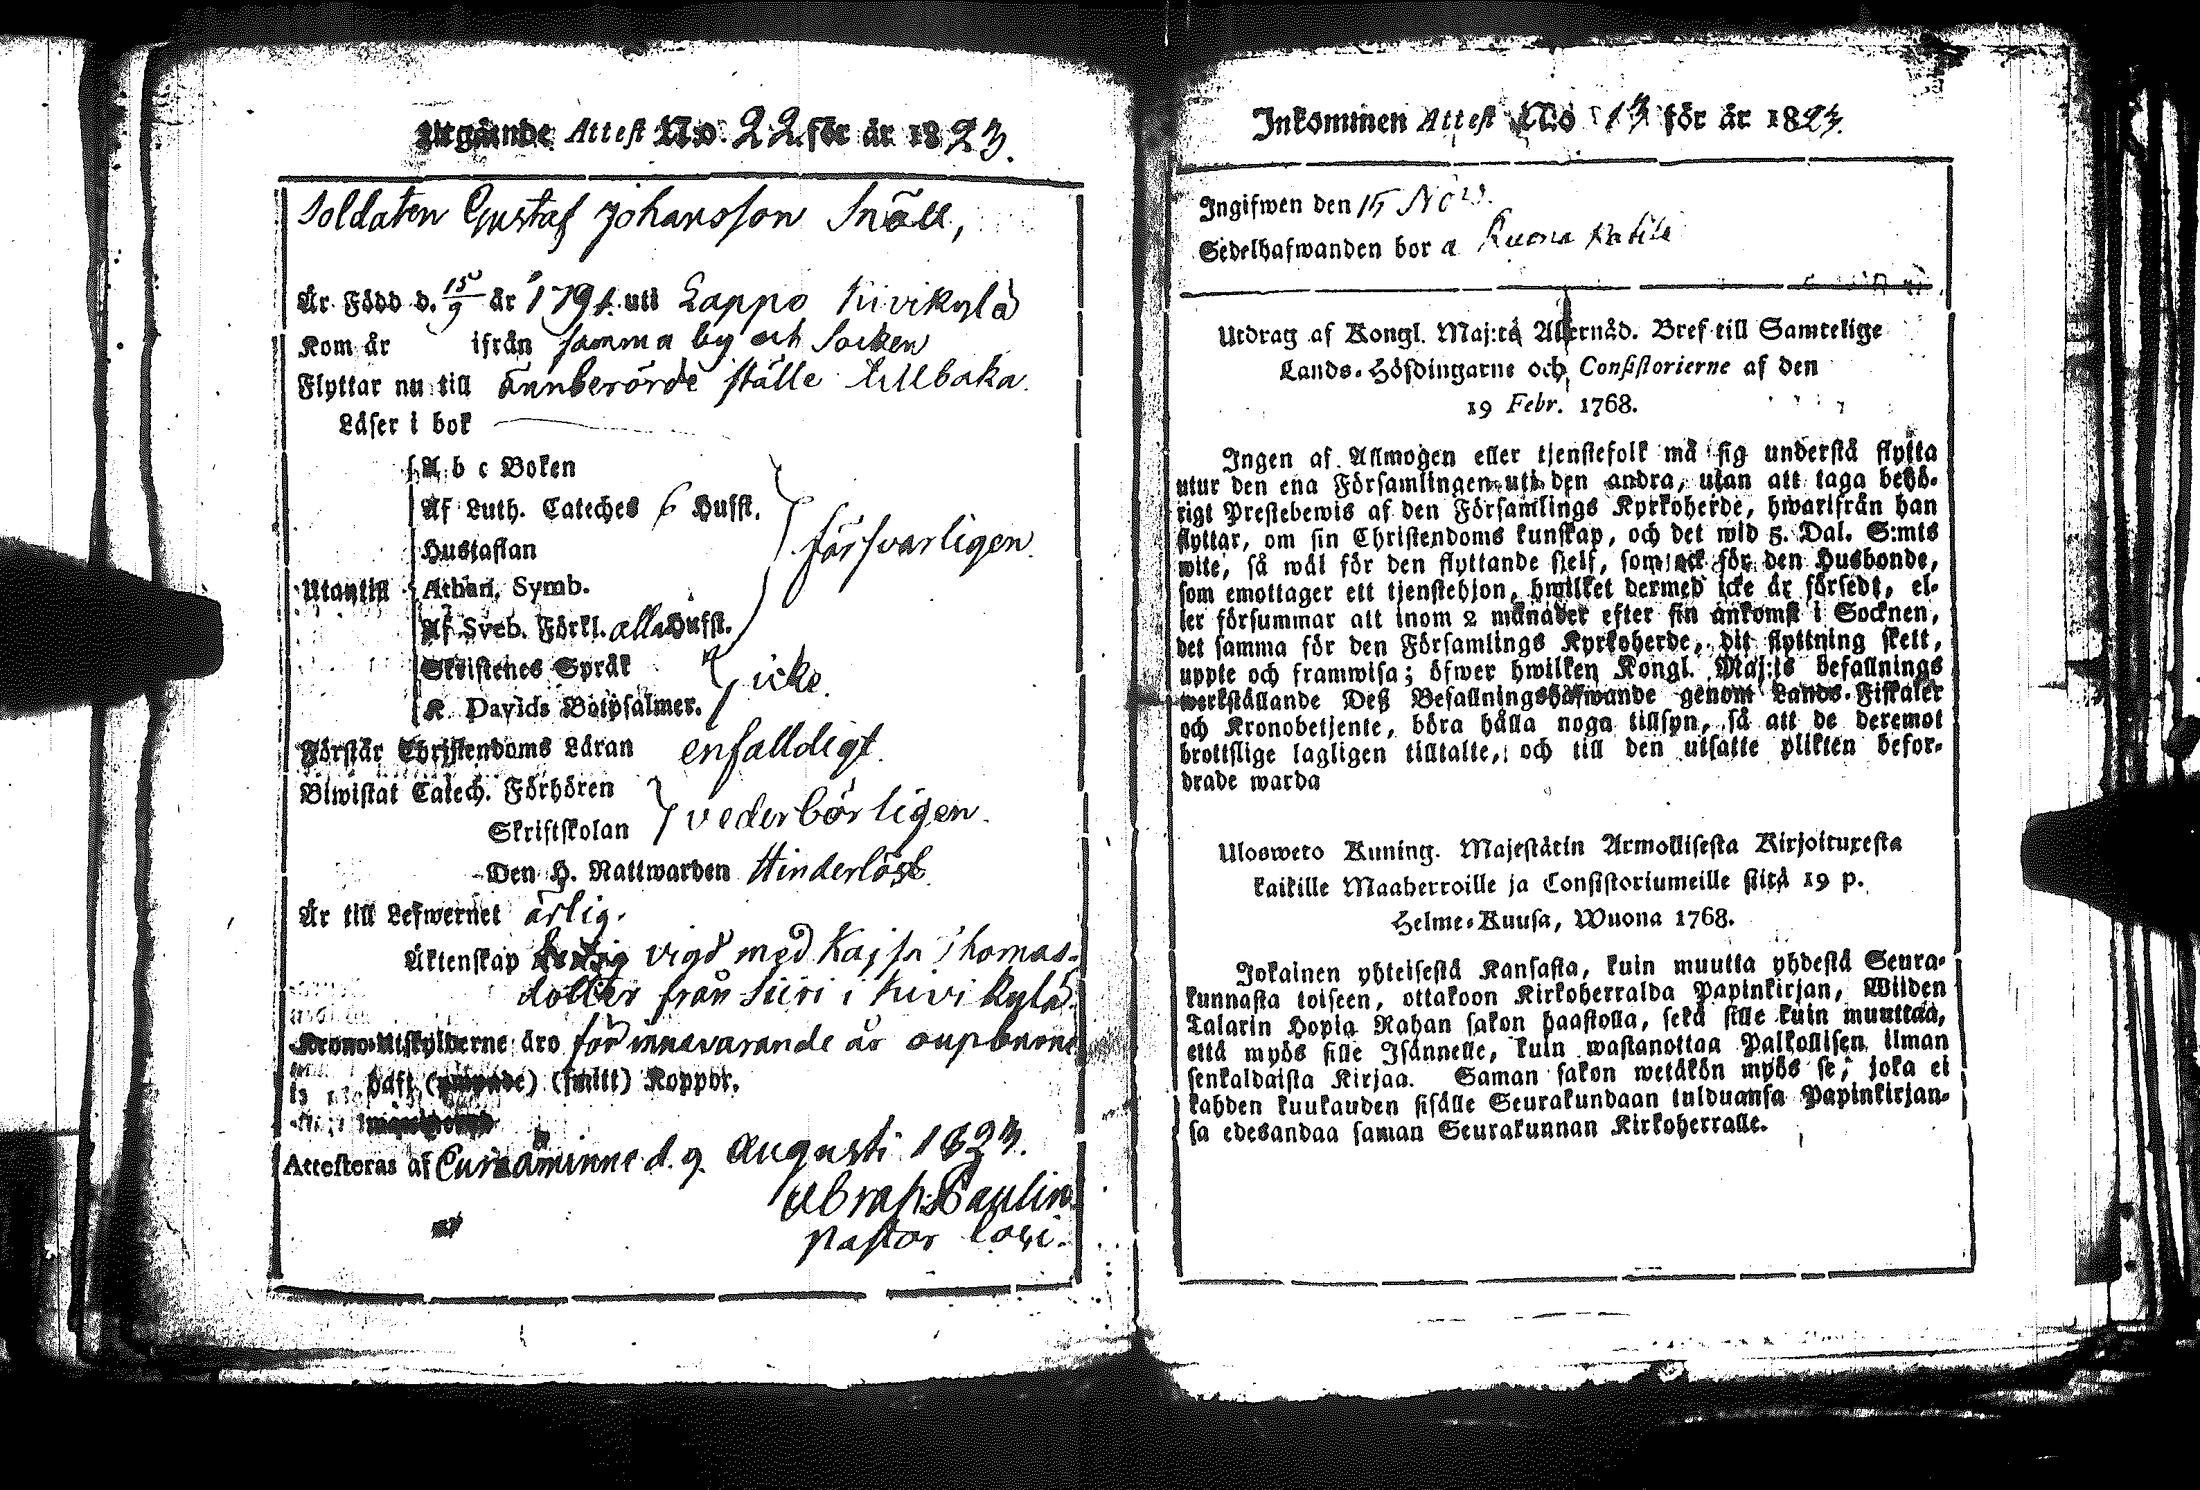 Utgående Attest N:o. 22. för år 1823.
Soldaten Gustaf Johansson Snäll,
Är Född d. 15/9 år 1791. uti Lappo Kivikylä
Kom år ifrån samma by och Socken
Flyttar nu till ännberörde ställe tillbaka.
Läser i bok
A b c Boken
Af Luth. Cateches 6 Hufst.
försvarligen
Hustaflan
Utantill
Athan. Symb.
Af Sveb. Förkl. alla Hufst.
Skriftenes Språk
icke.
K. Davids Botpsalmer.
Förstår Christendoms Läran enfalldigt.
Biwistat Catech. Förhören
vederbörligen.
Skriftskolan
Den H. Nattwarden Hinderlöst
Är till Lefwernet ärlig.
Äktenskap vigd med Kajsa Thomas-
dotter från Siiri i Kivikylä.
Krono-Utskylderne äro för innevarande år oupburne
haft (smitt) Koppor.
Attesteras af Euraåminne d. 9 Augusti 1823.
Abrah. Paulin
Pastor Loci.
Inkommen Attest N:o 13 för år 1823.
Ingifwen den 15 Nov.
Sedelhafwanden bor a
Utdrag af Kongl. Maj:ts Allernåd. Bref till Samtelige
Lands-Höfdingarne och Consistorierne af den
19 Febr. 1768.
Ingen af Allmogen eller tjenstefolk må sig understå flytta
utur den ena Församlingen uti den andra, utan att taga behö-
rigt Prestebewis af den Församlings Kyrkoherde, hwarifrån han
flyttar, om sin Christendoms kunskap, och det wid 5. Dal. S:mts
wite, så wäl för den flyttande sjelf, som ock för den Husbonde,
som emottager ett tjenstehjon, hwilket dermed icke är försedt, el-
ler försummar att inom 2 månader efter sin ankomst i Socknen,
det samma för den Församlings Kyrkoherde, dit flyttning skett,
uppte och framwisa; öfwer hwilken Kongl. Maj:ts befallnings
werkställande Deß Befallningshafwande genom Lands-Fiskaler
och Kronobetjente, böra hålla noga tillsyn, så att de deremot
brottslige lagligen tilltalte, och till den utsatte plikten befor-
drade warda
Ulosweto Kuning. Majestätin Armollisesta Kirjoituxesta
kaikille Maaherroille ja Consistoriumeille siitä 19 p.
Helme-Kuusa, Wuona 1768.
Jokainen yhteisestä Kansasta, kuin muutta yhdestä Seura-
kunnasta toiseen, ottakoon Kirkoherralda Papinkirjan, Wiiden
Talarin Hopia Rahan sakon haastolla, sekä sille kuin muuttaa,
että myös sille Isännelle, kuin wastanottaa Palkollisen ilman
senkaldaista Kirjaa. Saman sakon wetäkön myös se, joka ei
kahden kuukauden sisälle Seurakundaan tulduansa Papinkirjan-
sa edesandaa saman Seurakunnan Kirkoherralle.